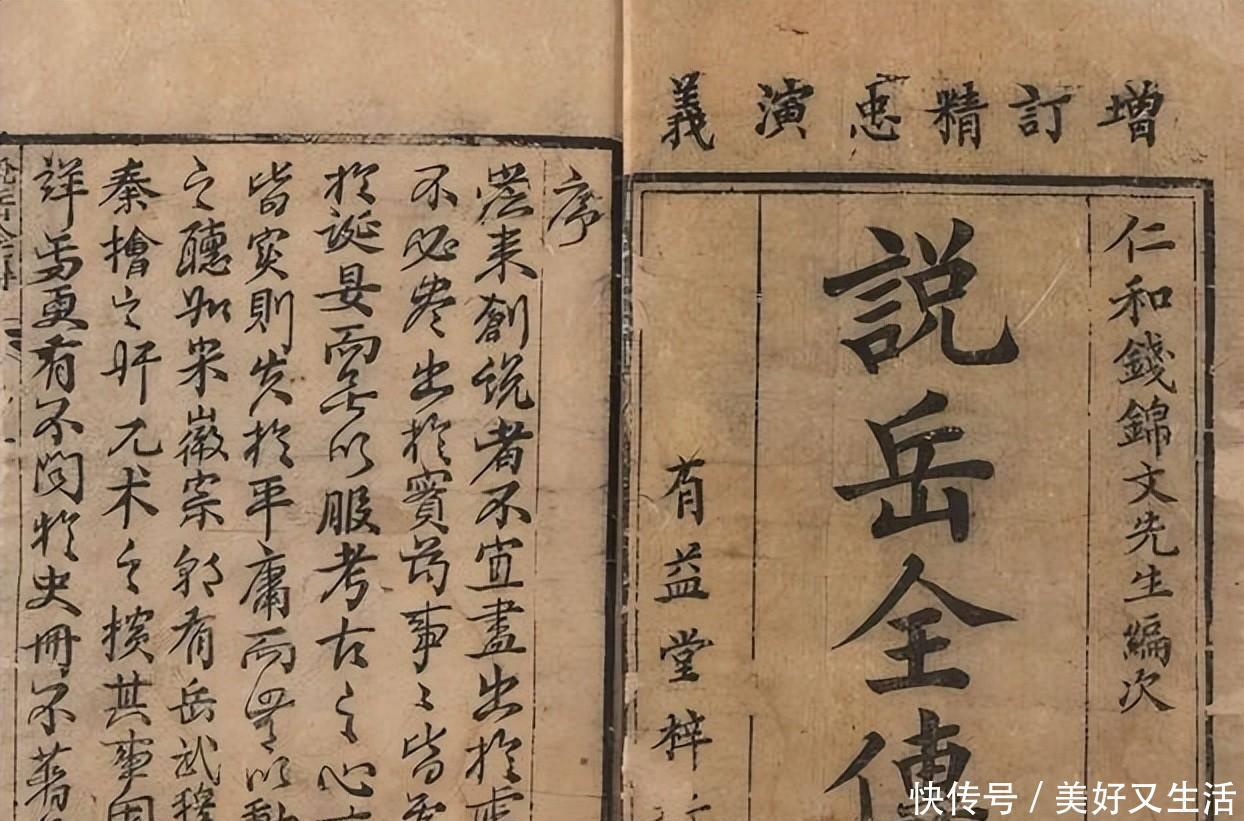 增訂精忠演義
仁和錢錦文先生編次
説岳全傳
有益堂梓
序
從来創説者不宜盡出於虛
不必尽出於實苟事〻皆
於誕妄而無以服考古之心
皆实則失於平庸而無以動
之聽如宋徽宗朝有岳武穆
秦檜之奸兀术之横其事固
詳焉更有不聞於史冊不著
快传号 / 美好又生活